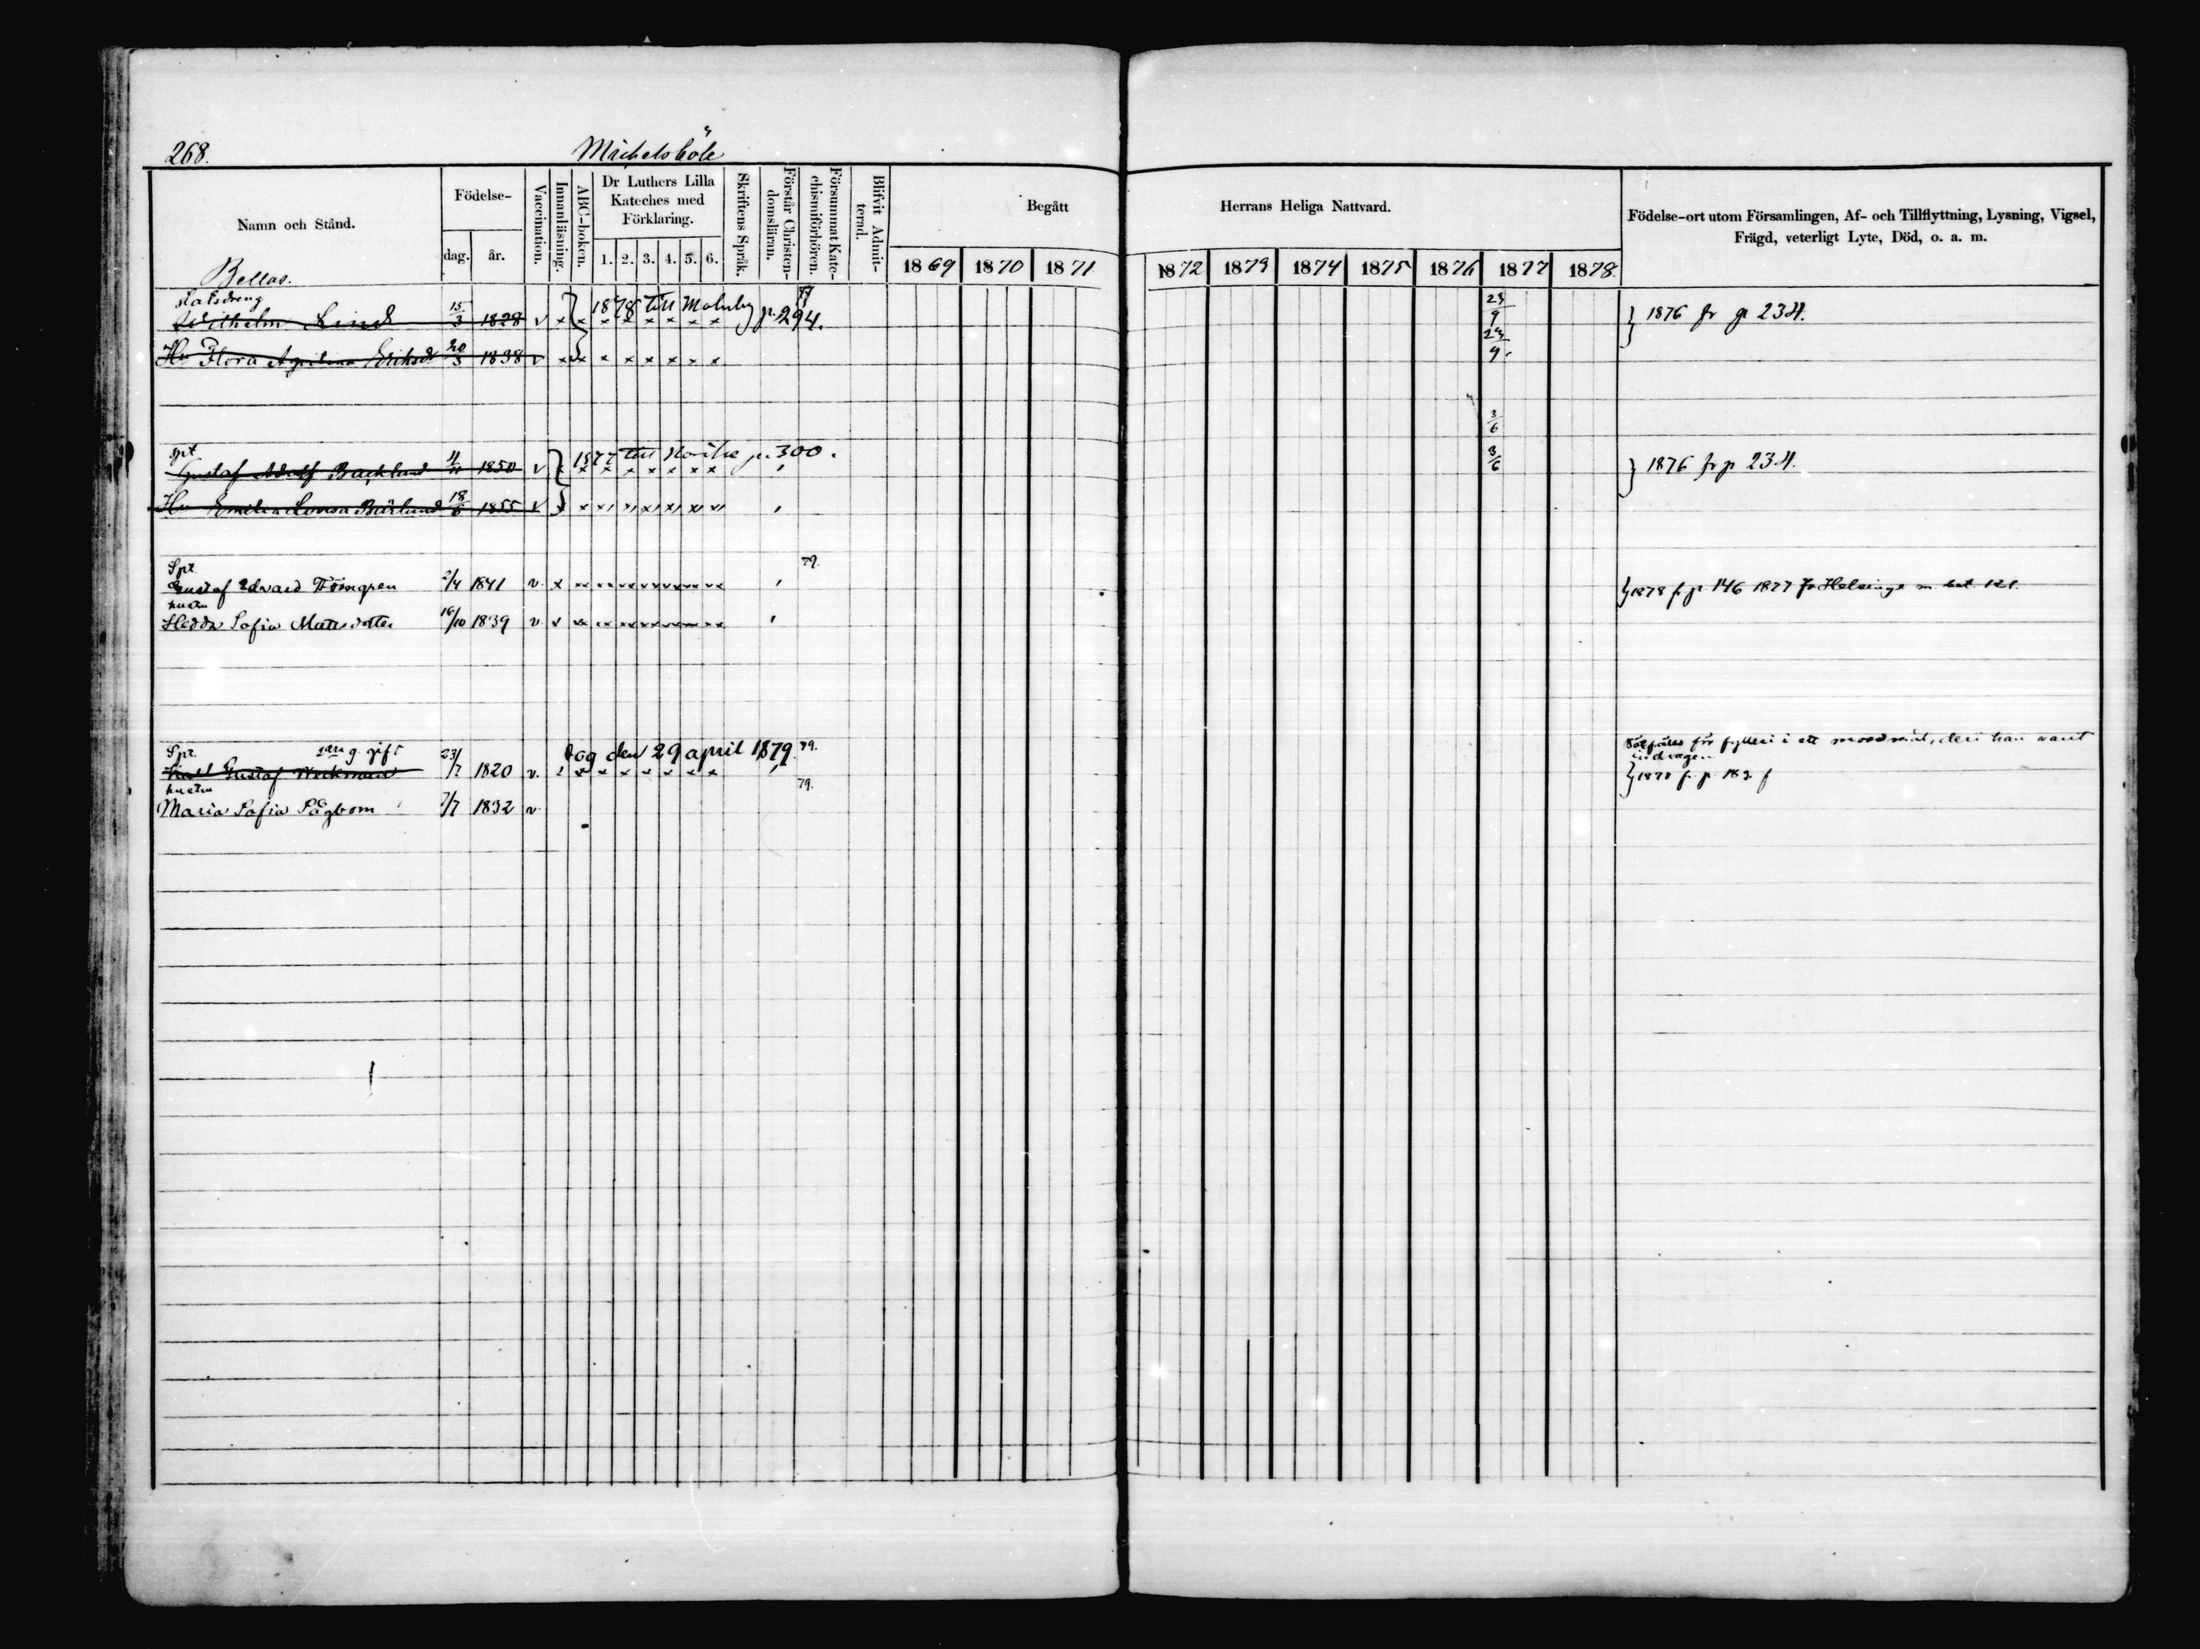 268.
Michelsböle
Namn och Stånd.
Födelse-
dag.
år.
Vaccination.
Innanläsning.
ABC-boken.
Dr Luthers Lilla
Kateches med
Förklaring.
1. 2. 3. 4. 5. 6.
Skriftens Språk.
Förstår Christen-
domsläran.
Försummat Kate-
chismiförhören.
Blifvit Admit-
terad.
Begått
Herrans Heliga Nattvard.
1869 1870 1871
1872 1873 1874 1875 1876 1877 1878.
Födelse-ort utom Församlingen, Af- och Tillflyttning, Lysning, Vigsel,
Frägd, veterligt Lyte, Död, o. a. m.
Bellas.
statsdreng
Wilhelm Lind 15/3 1828 v 1878 till Malmby p. 294. 77 23/9 } 1876 fr p 234.
Hu Flora Eriksd 20/3 1838 v 23/9.
3/6
spt
Gustaf Adolf Backlund 1850 v 1877 till p. 300. 3/6 } 1876 fr p 234.
Hu Emilia Lovisa 18/6 1855 v
Spt. 79.
Gustaf Edvard Törngren 2/4 1841 v. } 1878 fr p. 146 1877 fr Helsinge m. bet. 121.
hustru
Hedda Sofia Mattsdotter 16/10 1839 v
Spt. g. gift 23/7 1820 v. dog den 29 april 1879. 79.
Gustaf
för fylleri i ett mordmål, deri han varit
indragen.
hustru 79.
Maria Sofia Sågbom 7/7 1832 v.